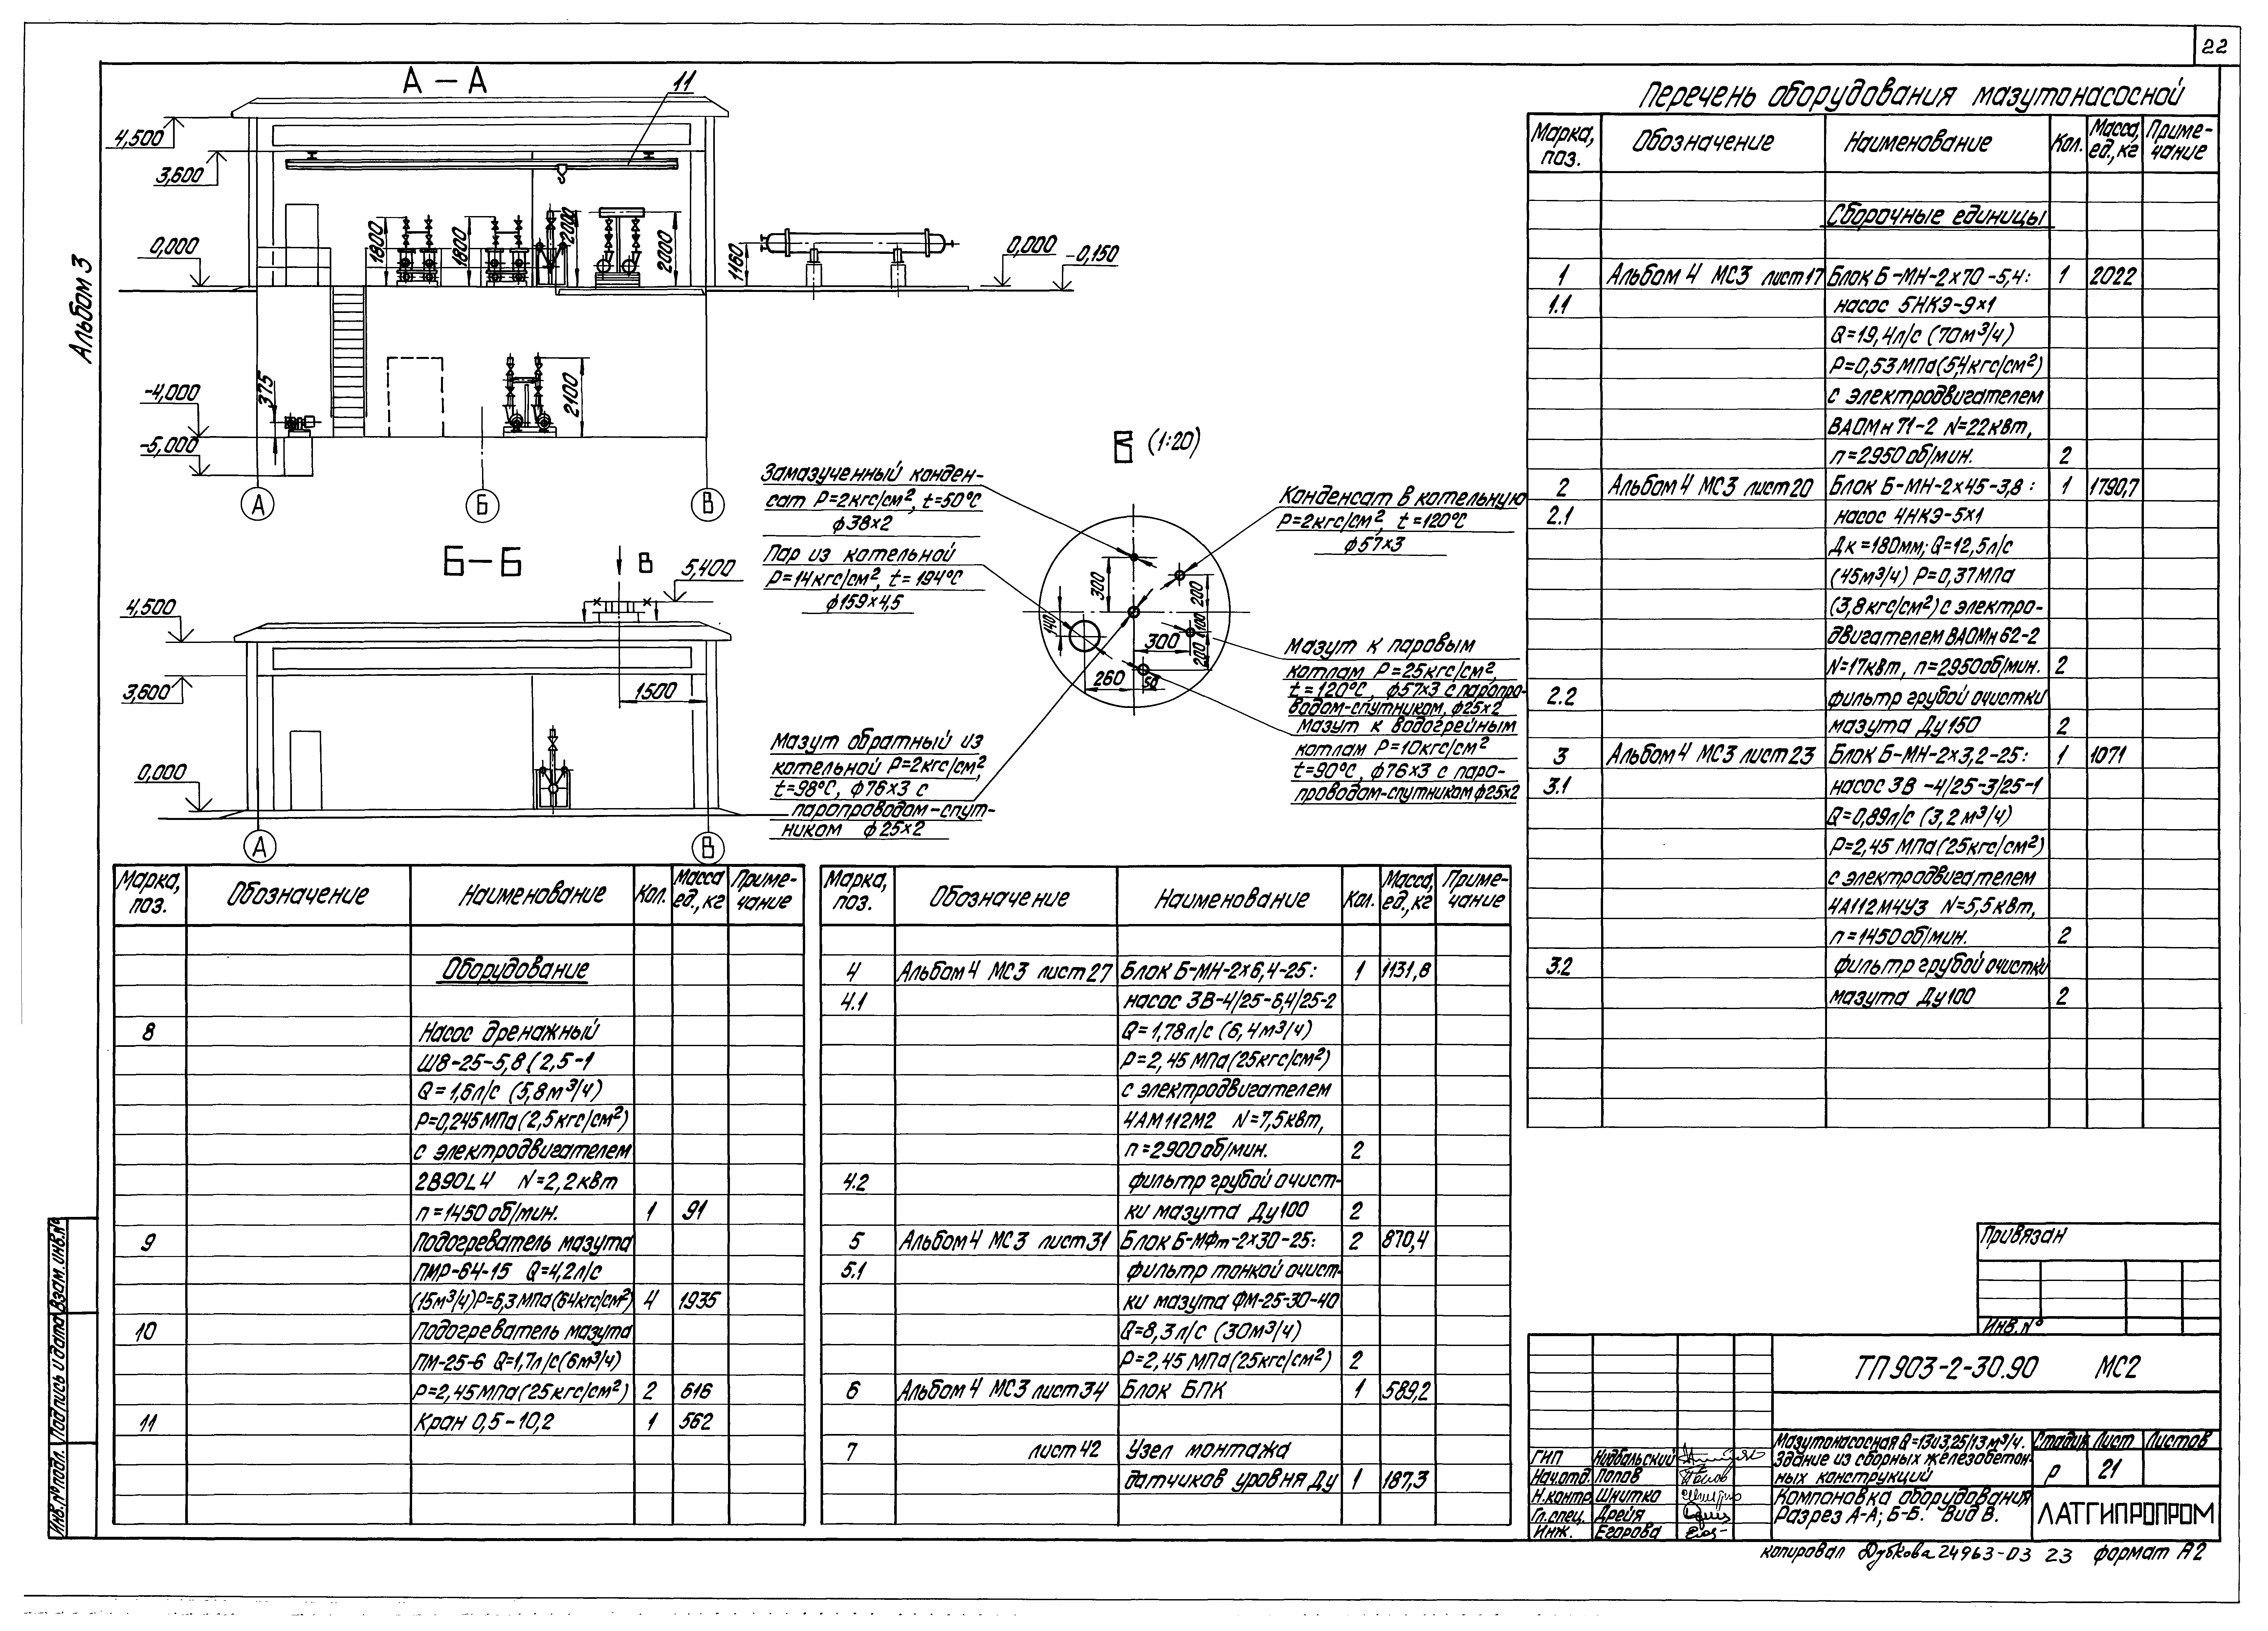 22
Альбом 3
А – А
11
4,500
3,600
0,000
1800
1800
2000
2000
1160
0,000
-0,150
-4,000
375
2100
-5,000
А
Б
В
Б–Б
В
5,400
4,500
3,600
1500
0,000
А
В
В (1:20)
Замазученный конден-
сат Р=2кгс/см², t=50°С
ф38х2
Пар из котельной
Р=14кгс/см², t=194°С
ф159х4,5
Конденсат в котельную
Р=2кгс/см², t=120°С
ф57х3
300
200
100
140
300
200
260
50
Мазут к паровым
котлам Р=25кгс/см²,
t=120°С, ф57х3 с паропро-
водом-спутником, ф25х2
Мазут к водогрейным
котлам Р=10кгс/см²
t=90°С, ф76х3 с паро-
проводом-спутником ф25х2
Мазут обратный из
котельной Р=2кгс/см²,
t=98°С, ф76х3 с
паропроводом-спут-
ником ф25х2
Перечень оборудования мазутонасосной
Марка, поз. Обозначение Наименование Кол. Масса, ед.,кг Приме-чание
Сборочные единицы
1 Альбом 4 МС3 лист 17 Блок Б-МН-2х70-5,4: 1 2022
1.1 насос 5НКЭ-9х1
Q=19,4л/с (70м³/ч)
Р=0,53МПа(5,4кгс/см²)
с электродвигателем
ВАОМн71-2 N=22квт,
п=2950об/мин. 2
2 Альбом 4 МС3 лист 20 Блок Б-МН-2х45-3,8: 1 1790,7
2.1 насос 4НКЭ-5х1
Дк=180мм; Q=12,5л/с
(45м³/ч) Р=0,37МПа
(3,8кгс/см²) с электро-
двигателем ВАОМн62-2
N=17квт, п=2950об/мин. 2
2.2 фильтр грубой очистки
мазута Ду150 2
3 Альбом 4 МС3 лист 23 Блок Б-МН-2х3,2-25: 1 1071
3.1 насос 3В-4/25-3/25-1
Q=0,89л/с (3,2м³/ч)
Р=2,45 МПа(25кгс/см²)
с электродвигателем
4А112М4У3 N=5,5квт,
п=1450об/мин. 2
3.2 фильтр грубой очистки
мазута Ду100 2
Марка, поз. Обозначение Наименование Кол. Масса ед.,кг Приме-чание
Оборудование
8 Насос дренажный
Ш8-25-5,8/2,5-1
Q=1,6л/с (5,8м³/ч)
Р=0,245МПа(2,5кгс/см²)
с электродвигателем
2В90L4 N=2,2квт
п=1450об/мин. 1 91
9 Подогреватель мазута
ПМР-64-15 Q=4,2л/с
(15м³/ч)Р=6,3МПа(64кгс/см²) 4 1935
10 Подогреватель мазута
ПМ-25-6 Q=1,7л/с(6м³/ч)
Р=2,45МПа(25кгс/см²) 2 616
11 Кран 0,5-10,2 1 562
Марка, поз. Обозначение Наименование Кол. Масса, ед.,кг Приме-чание
4 Альбом 4 МС3 лист 27 Блок Б-МН-2х6,4-25: 1 1131,8
4.1 насос 3В-4/25-6,4/25-2
Q=1,78л/с (6,4м³/ч)
Р=2,45 МПа(25кгс/см²)
с электродвигателем
4АМ112М2 N=7,5квт,
п=2900об/мин. 2
4.2 фильтр грубой очист-
ки мазута Ду100 2
5 Альбом 4 МС3 лист 31 Блок Б-МФт-2х30-25: 2 870,4
5.1 фильтр тонкой очист-
ки мазута ФМ-25-30-40
Q=8,3л/с (30м³/ч)
Р=2,45 МПа(25кгс/см²) 2
6 Альбом 4 МС3 лист 34 Блок БПК 1 589,2
7 лист 42 Узел монтажа
датчиков уровня Ду 1 187,3
Привязан
Инв.№
ТП 903-2-30.90 МС2
Мазутонасосная Q=13и3,25/13м³/ч.
Здание из сборных железобетон-
ных конструкций
Стадия Лист Листов
р 21
Компоновка оборудования
Разрез А-А; Б-Б. Вид В.
ЛАТГИПРОПРОМ
ГИП Нидбальский
Нач.отд. Попов
Н.контр. Шнитко
Гл.спец. Дрейя
Инж. Егорова
Взам.инв.№
Подпись и дата
Инв.№подл.
копировал Дубкова 24963-03 23 формат А2